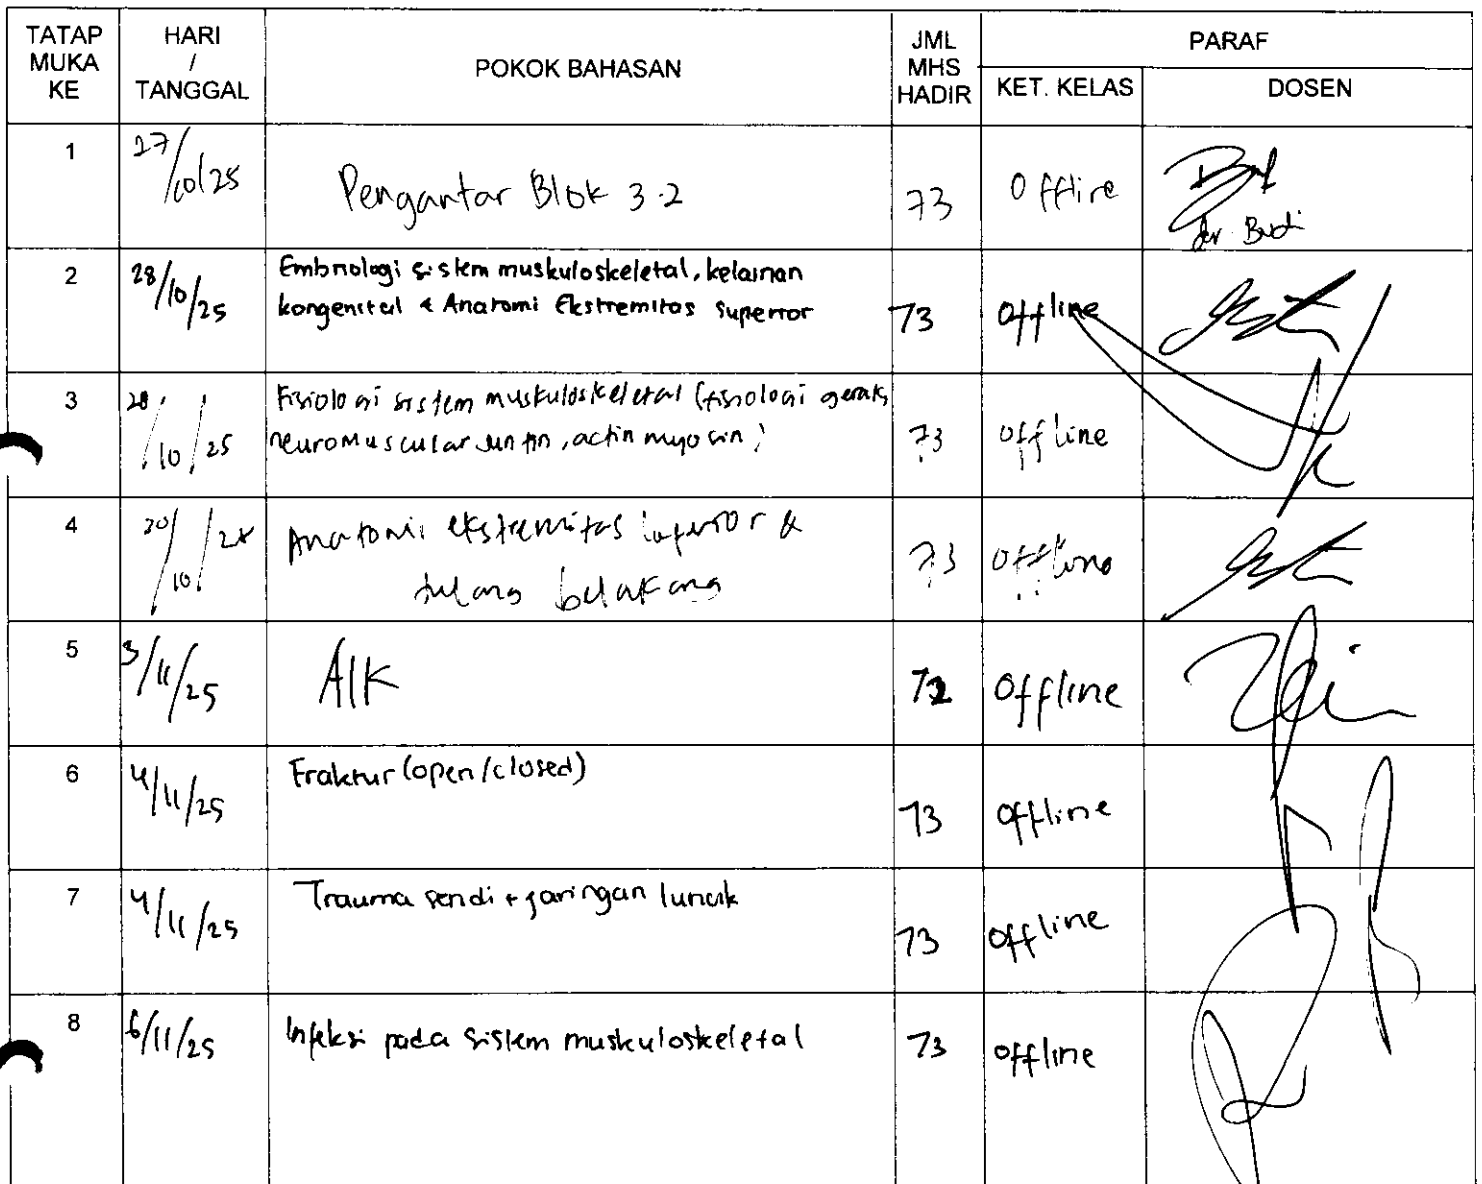 TATAP MUKA KE
HARI / TANGGAL
POKOK BAHASAN
JML MHS HADIR
PARAF
KET. KELAS
DOSEN
1 27/10/25 Pengantar Blok 3.2 73 Offline dr. Budi
2 28/10/25 Embriologi sistem muskuloskeletal, kelainan
kongenital & Anatomi Ekstremitas Superior 73 Offline
3 28/10/25 Fisiologi sistem muskuloskeletal (fisiologi gerak,
neuromuscular , actin myosin) 73 offline
4 30/10/25 Anatomi ekstremitas inferior &
tulang belakang 73 offline
5 3/11/25 AIK 72 Offline
6 4/11/25 Fraktur (open/closed) 73 offline
7 4/11/25 Trauma sendi + jaringan lunak 73 offline
8 6/11/25 Infeksi pada sistem muskuloskeletal 73 offline